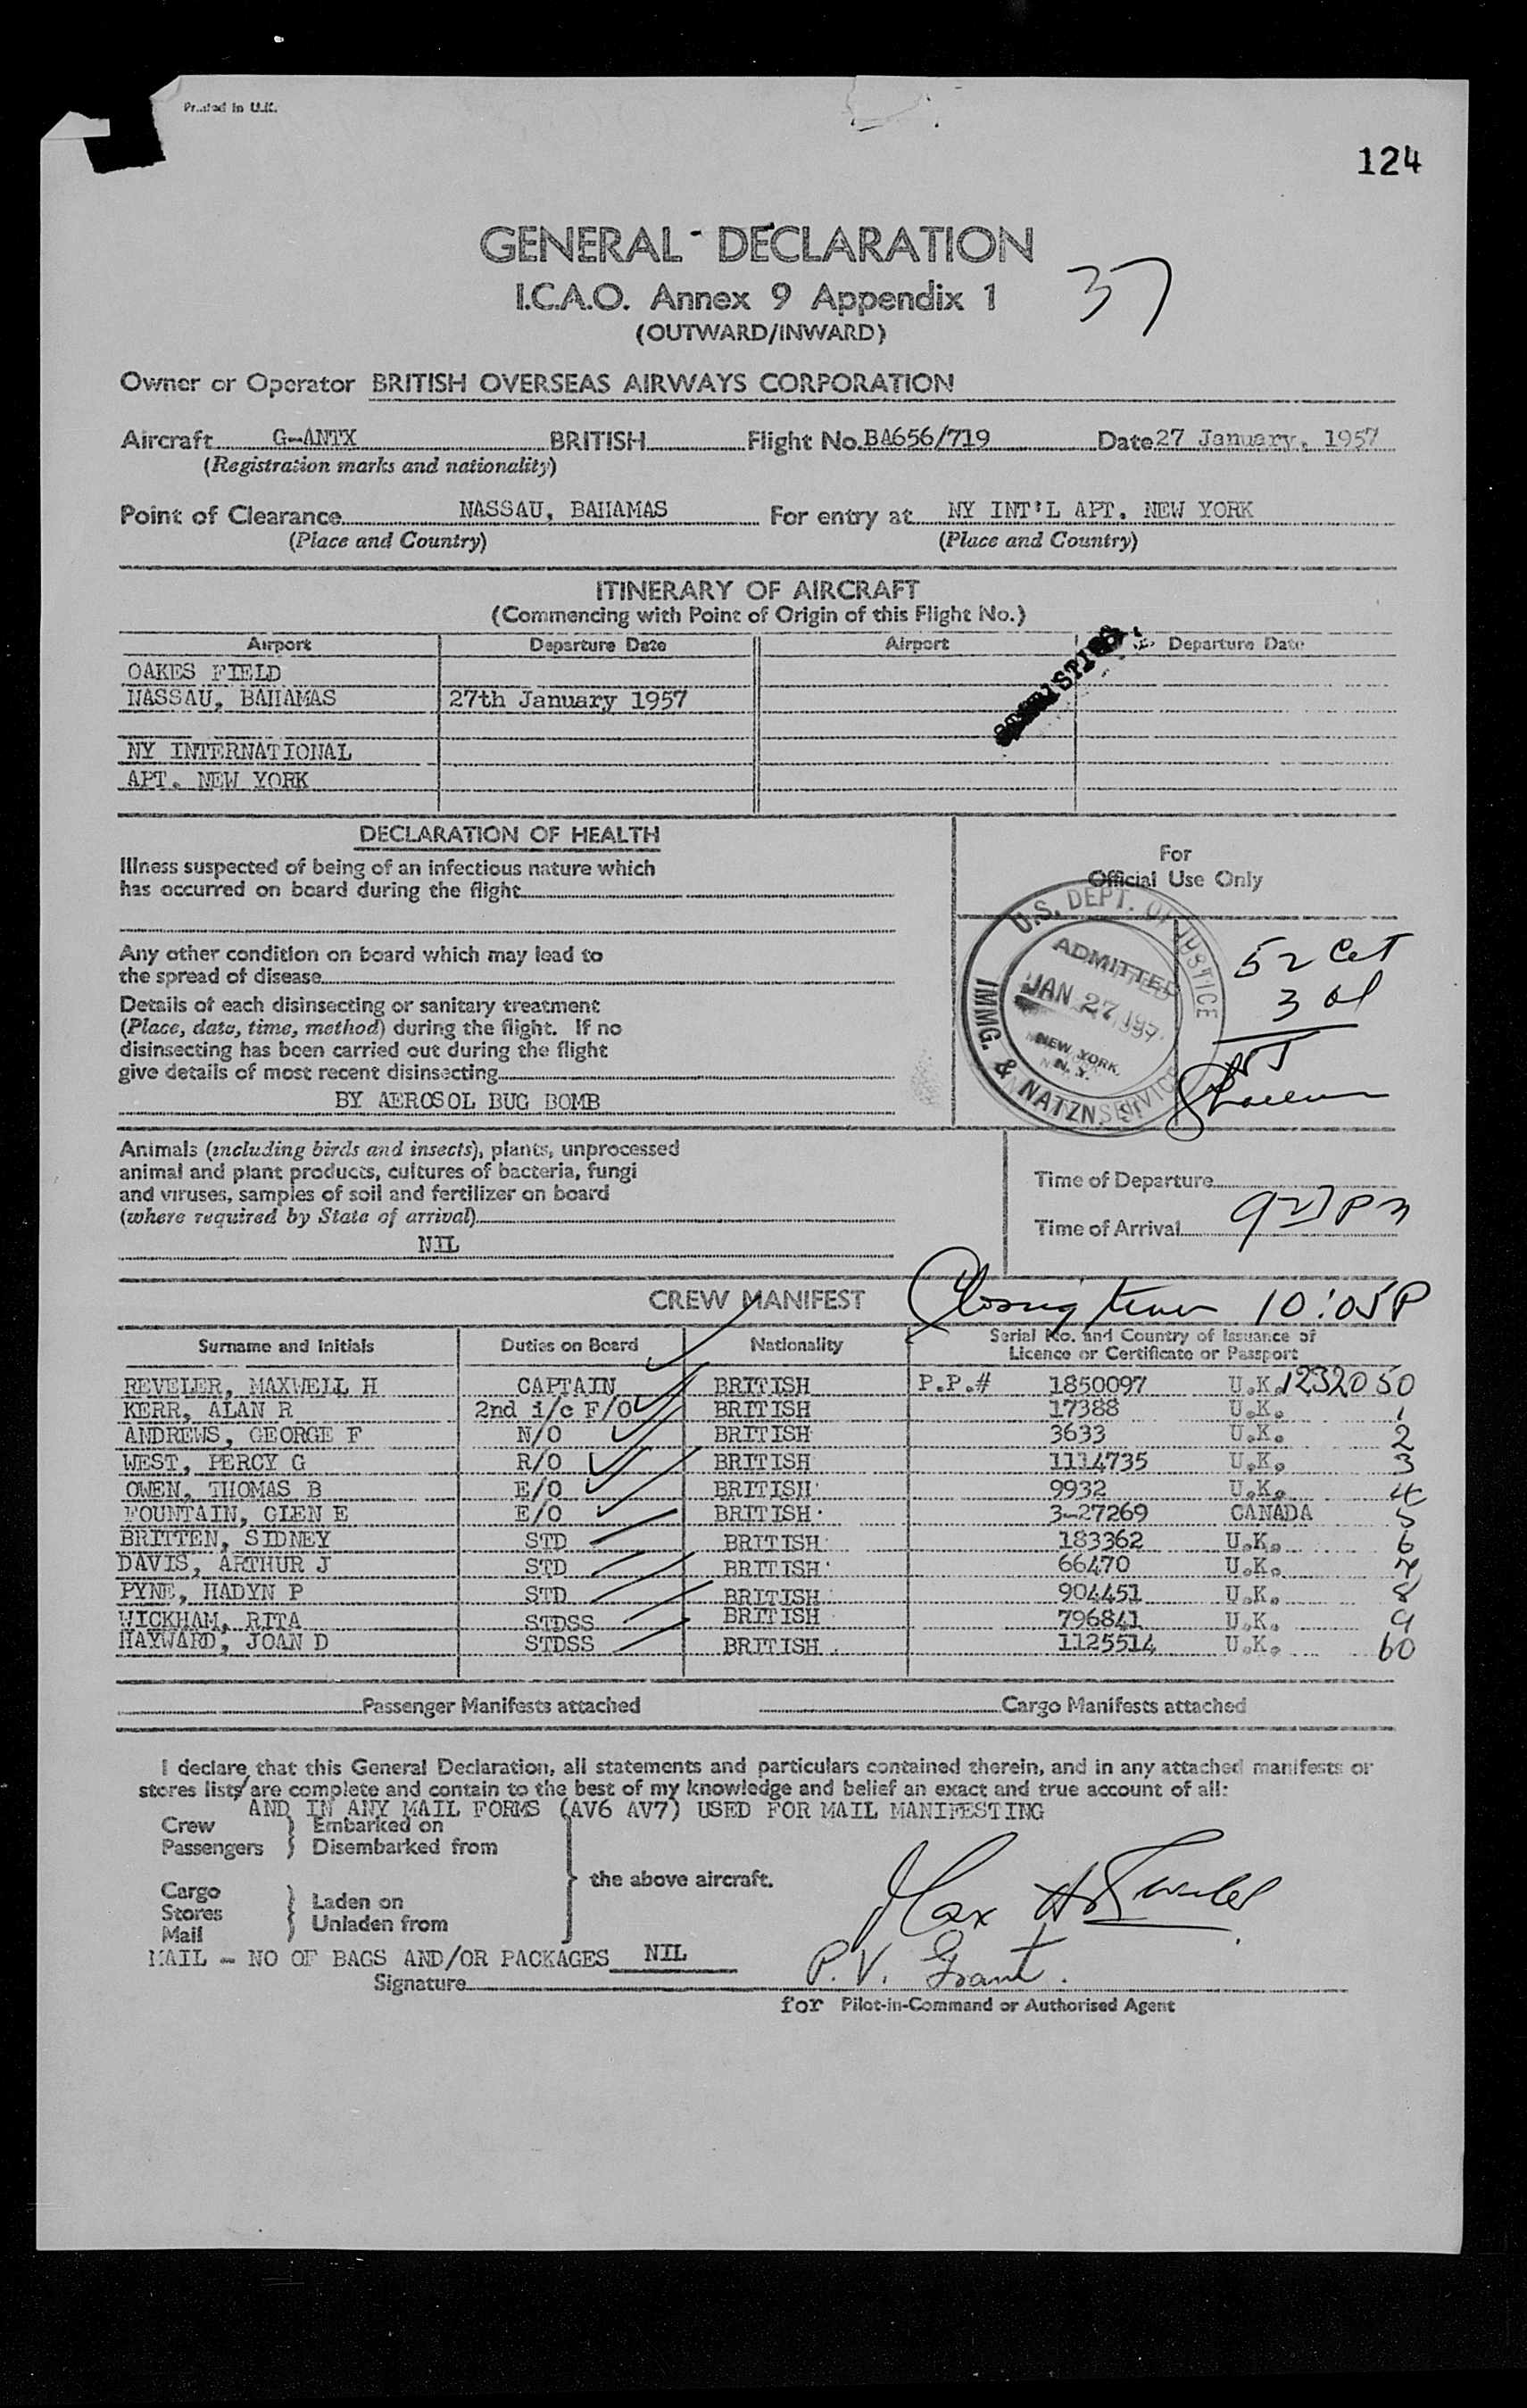 Printed in U.K.
124
GENERAL DECLARATION
37
I.C.A.O. Annex 9 Appendix 1
(OUTWARD/INWARD)
Owner or Operator BRITISH OVERSEAS AIRWAYS CORPORATION
Aircraft G-ANTX BRITISH Flight No. BA656/719 Date 27 January, 1957
(Registration marks and nationality)
Point of Clearance NASSAU, BAHAMAS For entry at NY INT'L APT. NEW YORK
(Place and Country) (Place and Country)
ITINERARY OF AIRCRAFT
(Commencing with Point of Origin of this Flight No.)
Airport Departure Date Airport Departure Date
OAKES FIELD
NASSAU, BAHAMAS 27th January 1957
NY INTERNATIONAL
APT. NEW YORK
DECLARATION OF HEALTH
Illness suspected of being of an infectious nature which
has occurred on board during the flight
Any other condition on board which may lead to
the spread of disease
Details of each disinsecting or sanitary treatment
(Place, date, time, method) during the flight. If no
disinsecting has been carried out during the flight
give details of most recent disinsecting
BY AEROSOL BUG BOMB
For
Official Use Only
U.S. DEPT. OF JUSTICE
ADMITTED
JAN 27 1957
NEW YORK,
N. Y.
IMMG. & NATZN SERVICE
52
3
Animals (including birds and insects), plants, unprocessed
animal and plant products, cultures of bacteria, fungi
and viruses, samples of soil and fertilizer on board
(where required by State of arrival)
NIL
Time of Departure
Time of Arrival 927 PM
CREW MANIFEST Closing time 10:05P
Surname and Initials Duties on Board Nationality Serial No. and Country of Issuance of
Licence or Certificate or Passport
REVELER, MAXWELL H CAPTAIN BRITISH P.P.# 1850097 U.K. 1232050
KERR, ALAN R 2nd i/c F/O BRITISH 17388 U.K. 1
ANDREWS, GEORGE F N/O BRITISH 3633 U.K. 2
WEST, PERCY G R/O BRITISH 1114735 U.K. 3
OWEN, THOMAS B E/O BRITISH 9932 U.K. 4
FOUNTAIN, GLEN E E/O BRITISH 3-27269 CANADA 5
BRITTEN, SIDNEY STD BRITISH 183362 U.K. 6
DAVIS, ARTHUR J STD BRITISH 66470 U.K. 7
PYNE, HADYN P STD BRITISH 904451 U.K. 8
WICKHAM, RITA STDSS BRITISH 796841 U.K. 9
HAYWARD, JOAN D STDSS BRITISH 1125514 U.K. 60
Passenger Manifests attached Cargo Manifests attached
I declare that this General Declaration, all statements and particulars contained therein, and in any attached manifests or
stores lists/are complete and contain to the best of my knowledge and belief an exact and true account of all:
AND IN ANY MAIL FORMS (AV6 AV7) USED FOR MAIL MANIFESTING
Crew Embarked on
Passengers Disembarked from
the above aircraft.
Cargo
Stores Laden on
Mail Unladen from
Max H
MAIL - NO OF BAGS AND/OR PACKAGES NIL
P. V. Grant.
Signature
for Pilot-in-Command or Authorised Agent